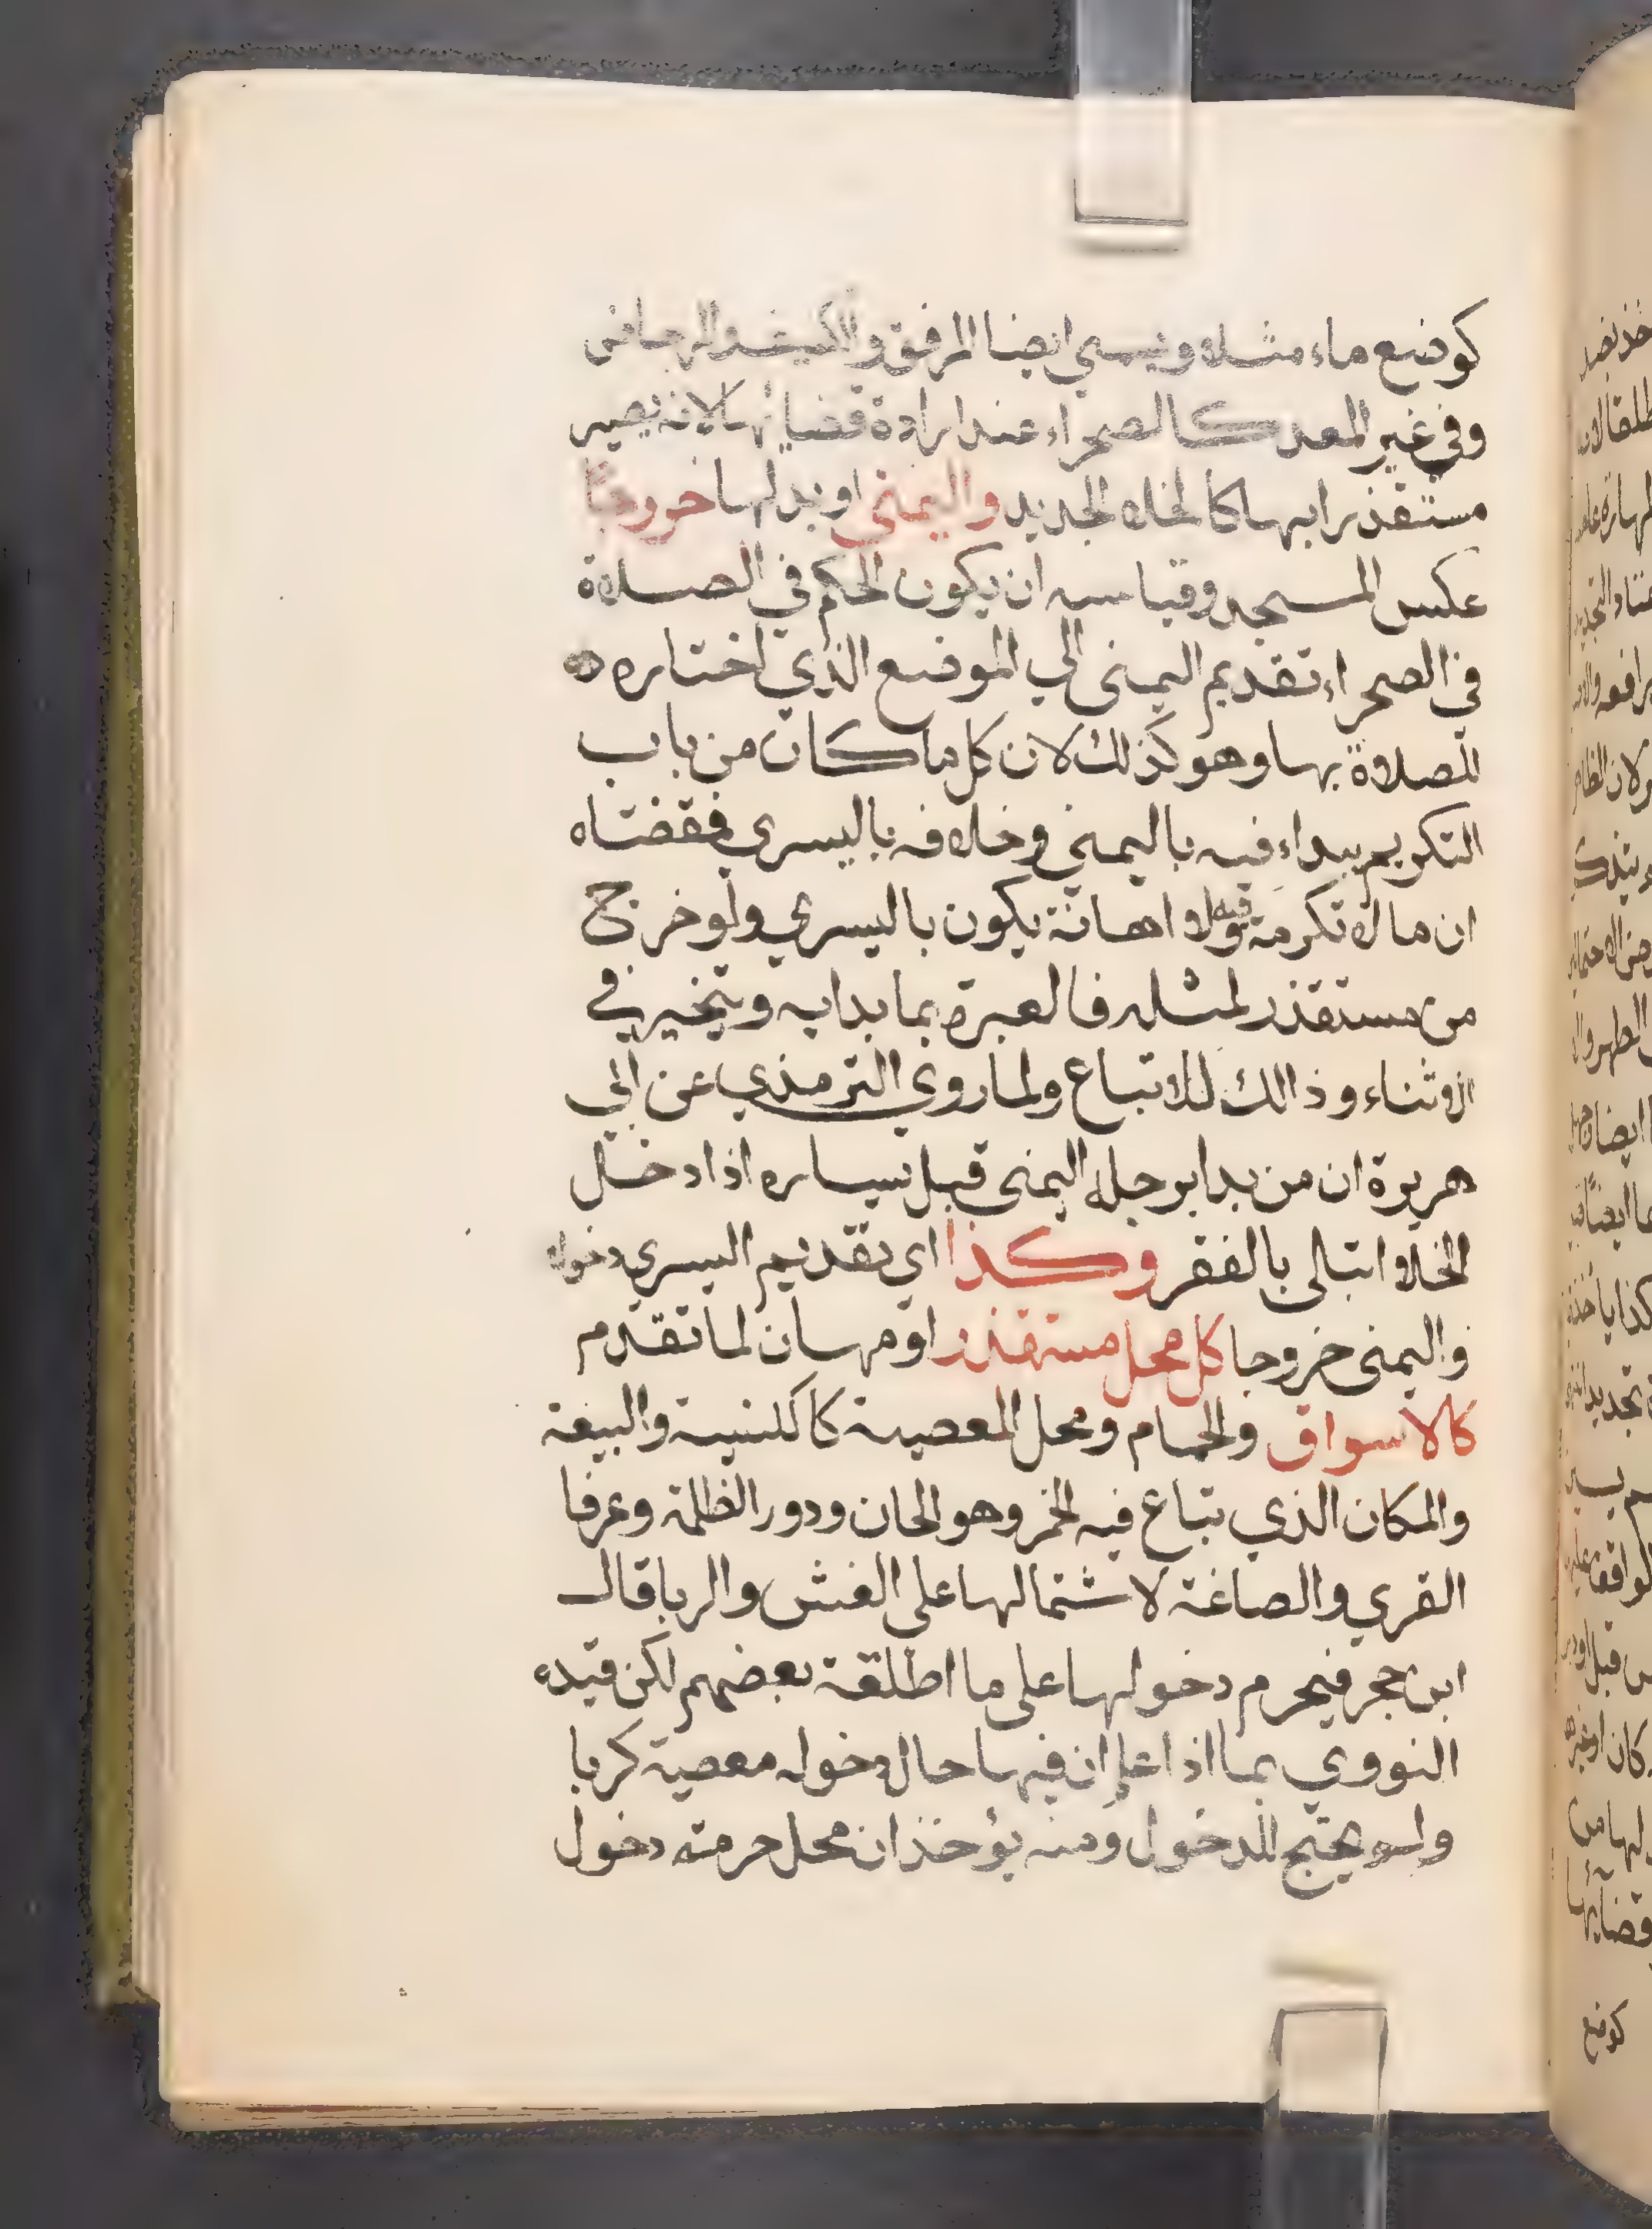 كوضع ماء مثلا ويسمي ايضا المرفق والكنيف والمرحاض
وفي غير المعد كالصحراء عند ارادة قضائها لانه يصير
مستقذرا بها كالخلاء الجديد واليمنى او بدلها خروجًا
عكس المسجد وقياسه ان يكون الحكم في الصلاة
في الصحراء تقديم اليمنى الي الموضع الذي اختاره
للصلاة بها وهو كذلك لان كل ما كان من باب
التكريم يبداء فيه باليمني وخلافه باليسري فمقتضاه
ان مالا تكرمة فيه ولا اهانة يكون باليسري ولو خرج
من مستقذر لمثله فالعبرة بما بدا به ويتخير في
الاثناء وذالك للاتباع ولما روي الترمذي عن ابي
هريرة ان من بدا برجله اليمنى قبل يساره اذا دخل
الخلاء ابتلى بالفقر وكذا اي تقديم اليسري دخولا
واليمنى خروجا كل محل مستقذر او مهان لما تقدم
كالاسواق والحمام ومحل المعصية كالكنيسة والبيعة
والمكان الذي تباع فيه الخمر وهو الحان ودور الظلمة وعرفا
القري والصاغة لاشتمالها على الغش والربا قال
ابن حجر فيحرم دخولها على ما اطلقة بعضهم لكن قيده
النووي بما اذا علم ان فيها حال دخوله معصية كربا
ولم يحتج للدخول ومنه يؤخذ ان محل حرمته دخول